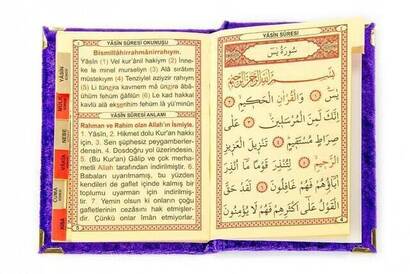 YÂSÎN SÛRESİ OKUNUŞU
Bismillâhirrahmânirrahîym.
Yâsîn (1) Vel kur'ânil hakiym (2) İnne-
ke le minel murseliyn (3) Alâ sırâtım
müstekıym (4) Tenziylel aziyzir rahıym
(5) Li tünzira kavmem mâ ünzira âbâ-
ühüm fehüm ğâfilûn (6) Le kad hakkal
kavlü alâ ekserihim fehüm lâ yü'minûn
YÂSÎN SÛRESİ ANLAMI
Rahman ve Rahim olan Allah'ın ismiyle.
1. Yâsîn, 2. Hikmet dolu Kur'an hakkı
için, 3. Sen şüphesiz peygamberler-
densin. 4. Dosdoğru yol üzerindesin.
5. (Bu Kur'an) Gâlip ve çok merha-
metli Allah tarafından indirilmiştir. 6.
Babaları uyarılmamış, bu yüzden
kendileri de gaflet içinde kalmış bir
toplumu uyarman için indirilmiş-
tir. 7. Yemin olsun ki onların çoğu
gafletlerinin cezâsını hak etmişler-
dir. Çünkü onlar îmân etmiyorlar.
YÂSÎN
MÜLK
NEBE
VÂKIA
CUMA
سُورَةُ يٰسٓ
بِسْمِ اللّٰهِ الرَّحْمٰنِ الرَّحِيمِ
يٰسٓ ﴿١﴾ وَالْقُرْاٰنِ الْحَكِيمِ ﴿٢﴾
اِنَّكَ لَمِنَ الْمُرْسَلِينَ ﴿٣﴾ عَلٰى
صِرَاطٍ مُسْتَقِيمٍ ﴿٤﴾ تَنْزِيلَ الْعَزِيزِ
الرَّحِيمِ ﴿٥﴾ لِتُنْذِرَ قَوْمًا مَا اُنْذِرَ
اٰبَاؤُهُمْ فَهُمْ غَافِلُونَ ﴿٦﴾ لَقَدْ حَقَّ
الْقَوْلُ عَلٰى اَكْثَرِهِمْ فَهُمْ لَا يُؤْمِنُونَ